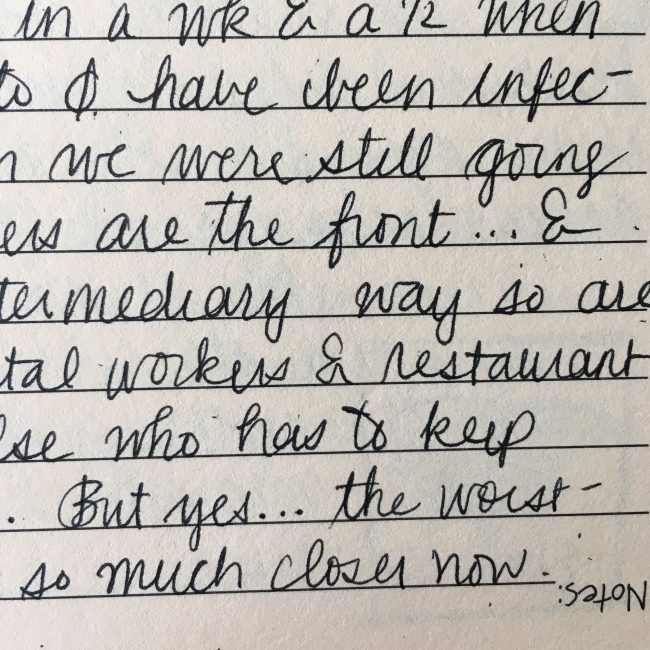 in a wk & a 1/2 when
to have been infec-
n we were still going
ers are the front... &
termediary way so are
tal workers & restaurant
lse who has to keep
. But yes... the worst-
so much closer now.
Notes: